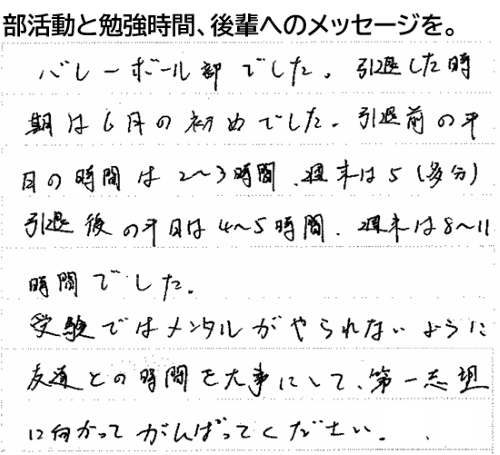 部活動と勉強時間、後輩へのメッセージを。
バレーボール部でした。引退した時
期は6月の初めでした。引退前の平
日の時間は2〜3時間、週末は5(多分)
引退後の平日は4〜5時間、週末は8〜11
時間でした。
受験ではメンタルがやられないように
友達との時間を大事にして、第一志望
に向かってがんばってください。